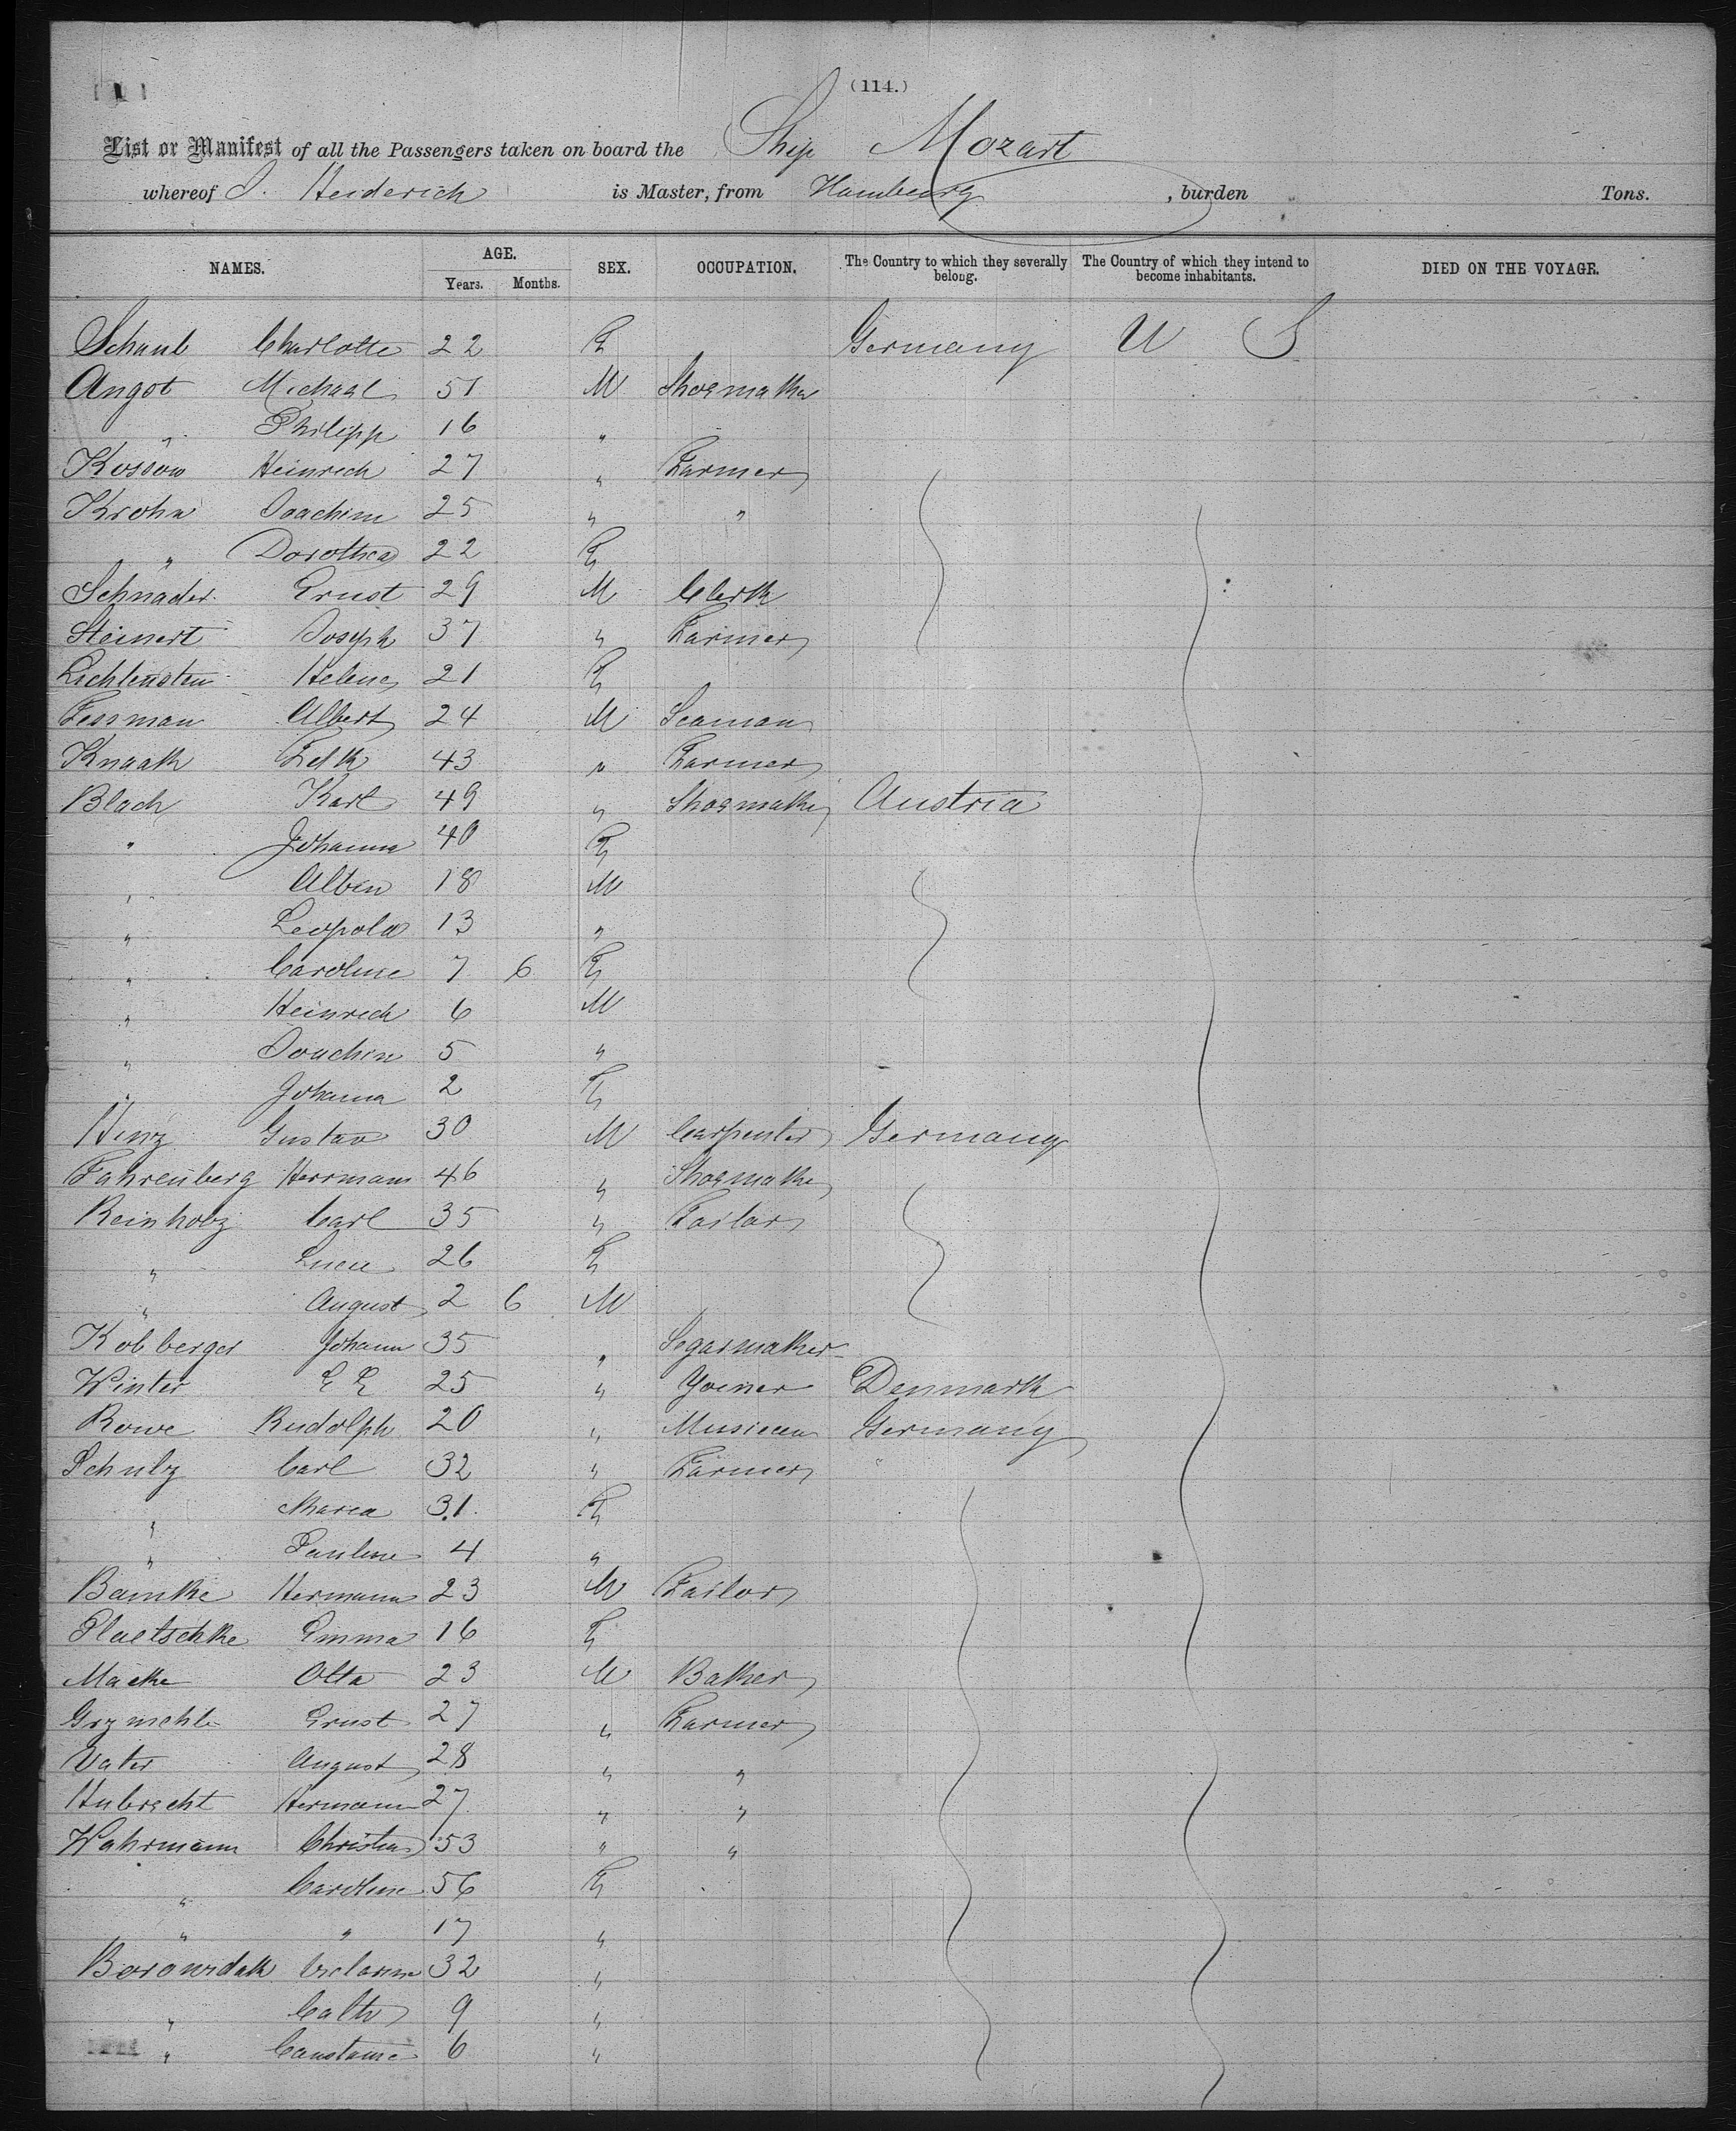 (114.)
List or Manifest of all the Passengers taken on board the Ship Mozart
whereof J. Heiderich is Master, from Hambourg , burden Tons.
NAMES. AGE. Years. Months. SEX. OCCUPATION. The Country to which they severally belong. The Country of which they intend to become inhabitants. DIED ON THE VOYAGE.
Schaub Charlotte 22 F Germany U S
Angot Michael 51 M Shoemaker
" Philipp 16 "
Kossow Heinrich 27 " Farmer
Krohn Joachim 25 " "
" Dorothea 22 F
Schnader Ernst 29 M Clerk
Steinert Joseph 37 " Farmer
Lichtensten Helene 21 F
Fessman Albert 24 M Seaman
Knaak 43 " Farmer
Blach Karl 49 " Shoemaker Austria
" Johanna 40 F
" Albin 18 M
" Leopold 13 "
" Caroline 7 6 F
" Heinrich 6 M
" Joachim 5 "
" Johanna 2 F
Hinz Gustav 30 M Carpenter Germany
Fahrenberg Herrmann 46 " Shoemaker
Reinholz Carl 35 " Tailor
" 26 F
" August 2 6 M
Kolberger Johann 35 " Segarmaker
Winter 25 " Joiner Denmark
Rowe Rudolph 20 " Musician Germany
Schulz Carl 32 " Farmer "
" Maria 31 F
" Pauline 4 "
Bamke Hermann 23 M Tailor
Plaetschke Emma 16 F
Macke Otto 23 M Baker
Ernst 27 " Farmer
Vater August 28 " "
Hubrecht Hermann 27 " "
Wahrmann Christian 53 " "
" Caroline 56 F
" " 17 "
32 "
" 9 "
" Constanie 6 "